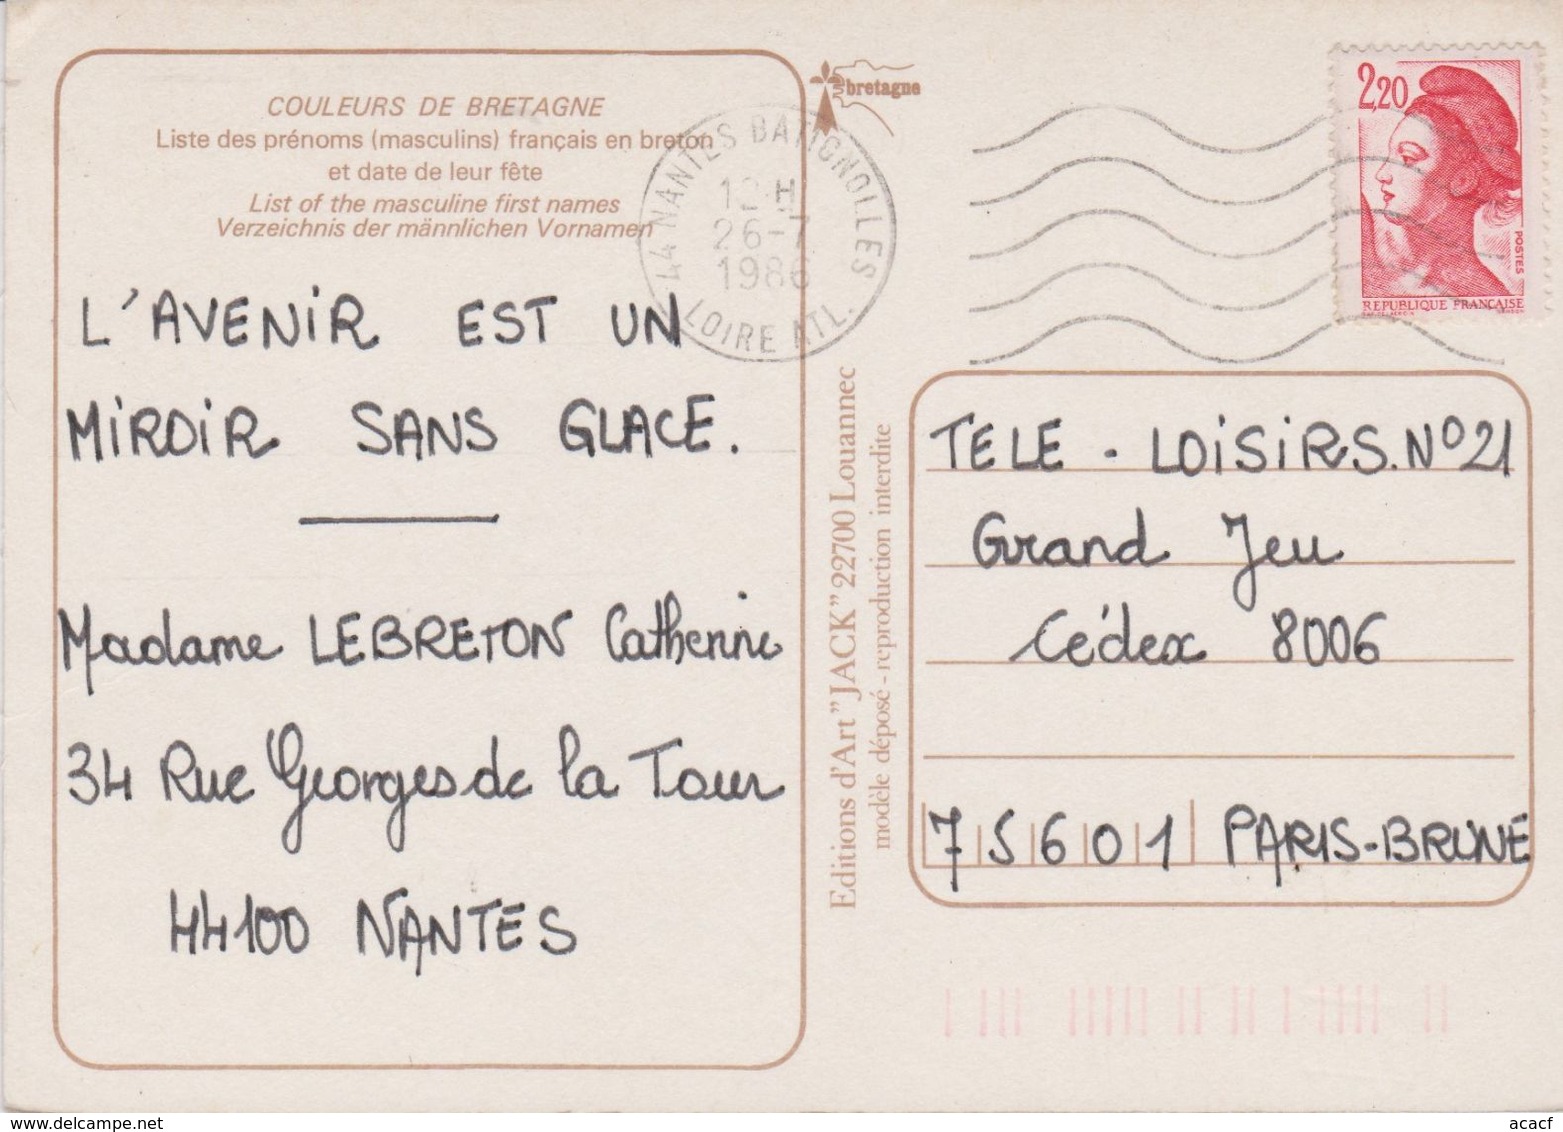 COULEURS DE BRETAGNE
Liste des prénoms (masculins) français en breton
et date de leur fête
List of the masculine first names
Verzeichnis der männlichen Vornamen
L'AVENIR EST UN
MIROIR SANS GLACE.
Madame LEBRETON Catherine
34 Rue Georges de la Tour
44100 NANTES
bretagne
44 NANTES BATIGNOLLES
12 H
26-7
1986
LOIRE ATL.
Editions d'Art "JACK" 22700 Louannec
modèle déposé - reproduction interdite
2,20
POSTES
REPUBLIQUE FRANÇAISE
TELE - LOISIRS. N° 21
Grand Jeu
Cédex 8006
75601 PARIS-BRUNE
acacf